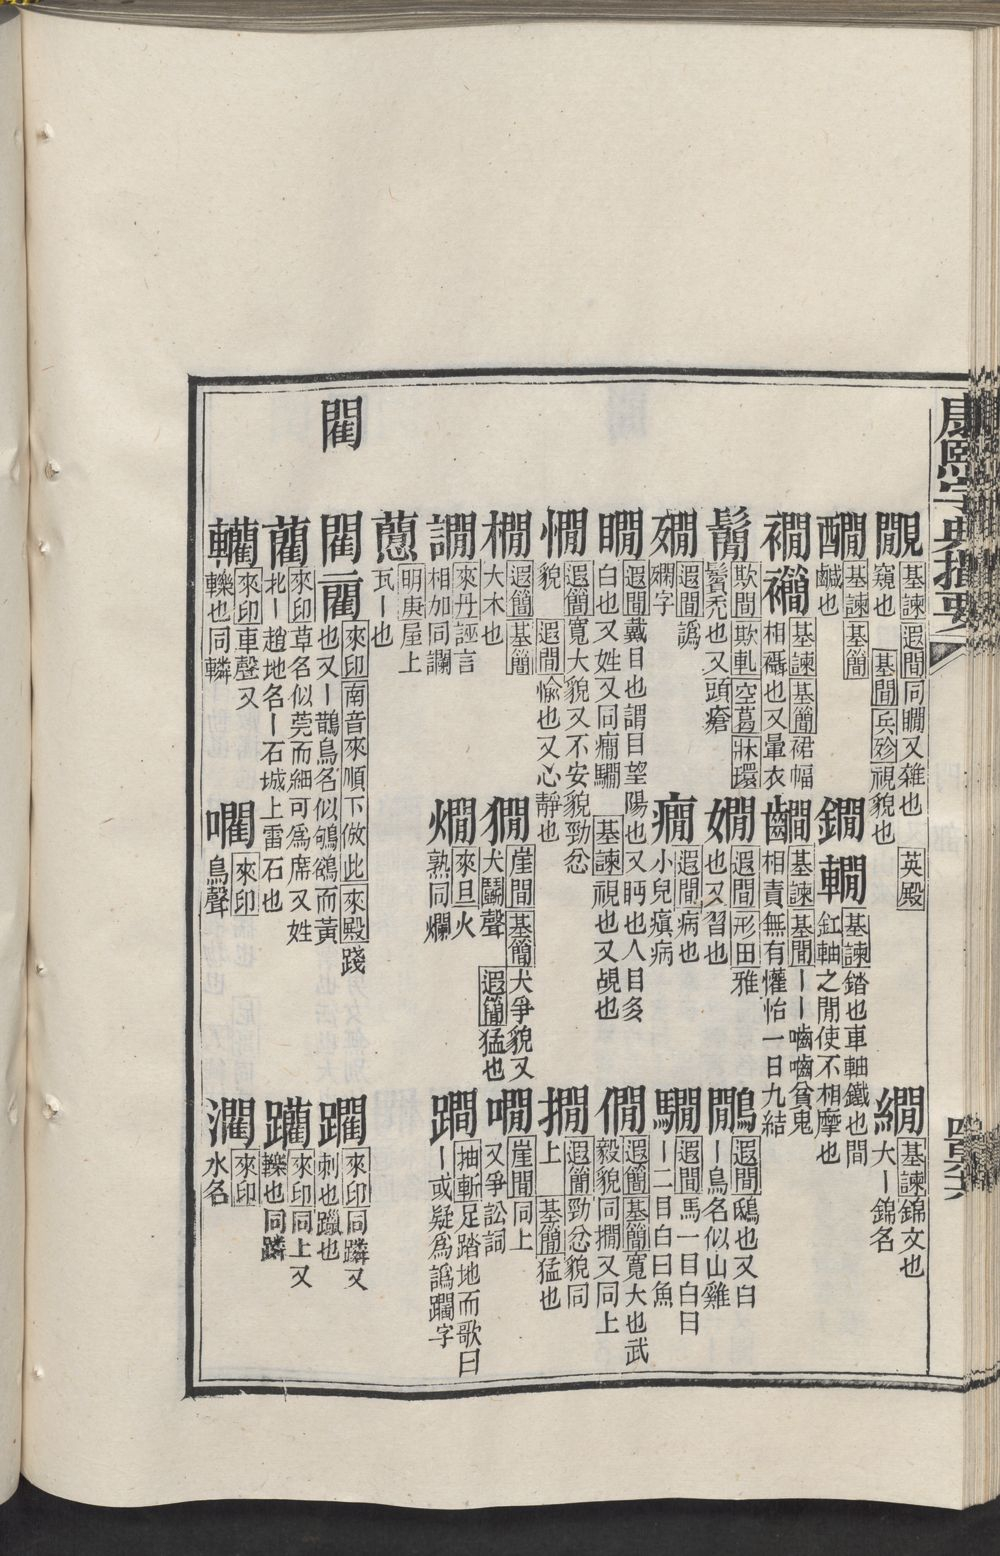 康熙字典撮要
覸 基諫 遐間 同瞯又雜也 英殿
窺也 基間 兵殄 視貌也
繝 基諫 錦文也
大ー錦名
醶 基諫 基簡
鹹也
鐧 轎 基諫 鍇也車軸鐵也間
釭軸之閒使不相摩也
襇 襉 基諫 基簡 裙幅
相䙝也又暈衣
齫 基諫 基間 ーー嚙嚙貧鬼
相責無有懽怡一日九結
鬜 欺間 欺軋 空葛 牀環
鬢禿也又頭瘡
嫺 遐間 形田 雅
也又習也
鷳 遐間 鴟也又白
ー鳥名似山雞
遐間 譌
嫻字
癇 遐間 病也
小兒瘨病
騆 遐間 馬一目白曰
ー二目白曰魚
瞯 遐間 戴目也謂目望陽也又眄也人目多
白也又姓又同癇騆 基諫 視也又覘也
僩 遐簡 基簡 寬大也武
毅貌同撊又同上
憪 遐簡 寬大貌又不安貌勁忿
貌 遐間 愉也又心靜也
撊 遐簡 勁忿貌同
上 基簡 猛也
橌 遐簡 基簡
大木也
獮 崖間 基簡 犬爭貌又
犬鬭聲 遐簡 猛也
嗰 崖間 同上
又爭訟詞
讕 來丹 誣言
相加同讕
爛 來旦 火
熟同爛
躝 抽斬 足踏地而歌曰
ー或疑爲譌躝字
明庚 屋上
瓦ー也
閵
閵 來印 南音來順下倣此 來殿 踐
也又ー鵲鳥名似鴝鵒而黃
躪 來印 同蹸又
刺也躐也
藺 來印 草名似莞而細可爲席又姓
北ー趙地名ー石城上雷石也
躪 來印 同上又
轢也同蹸
轥 來印 車聲又
轢也同轔
㘓 來印
鳥聲
瀾 來印
水名